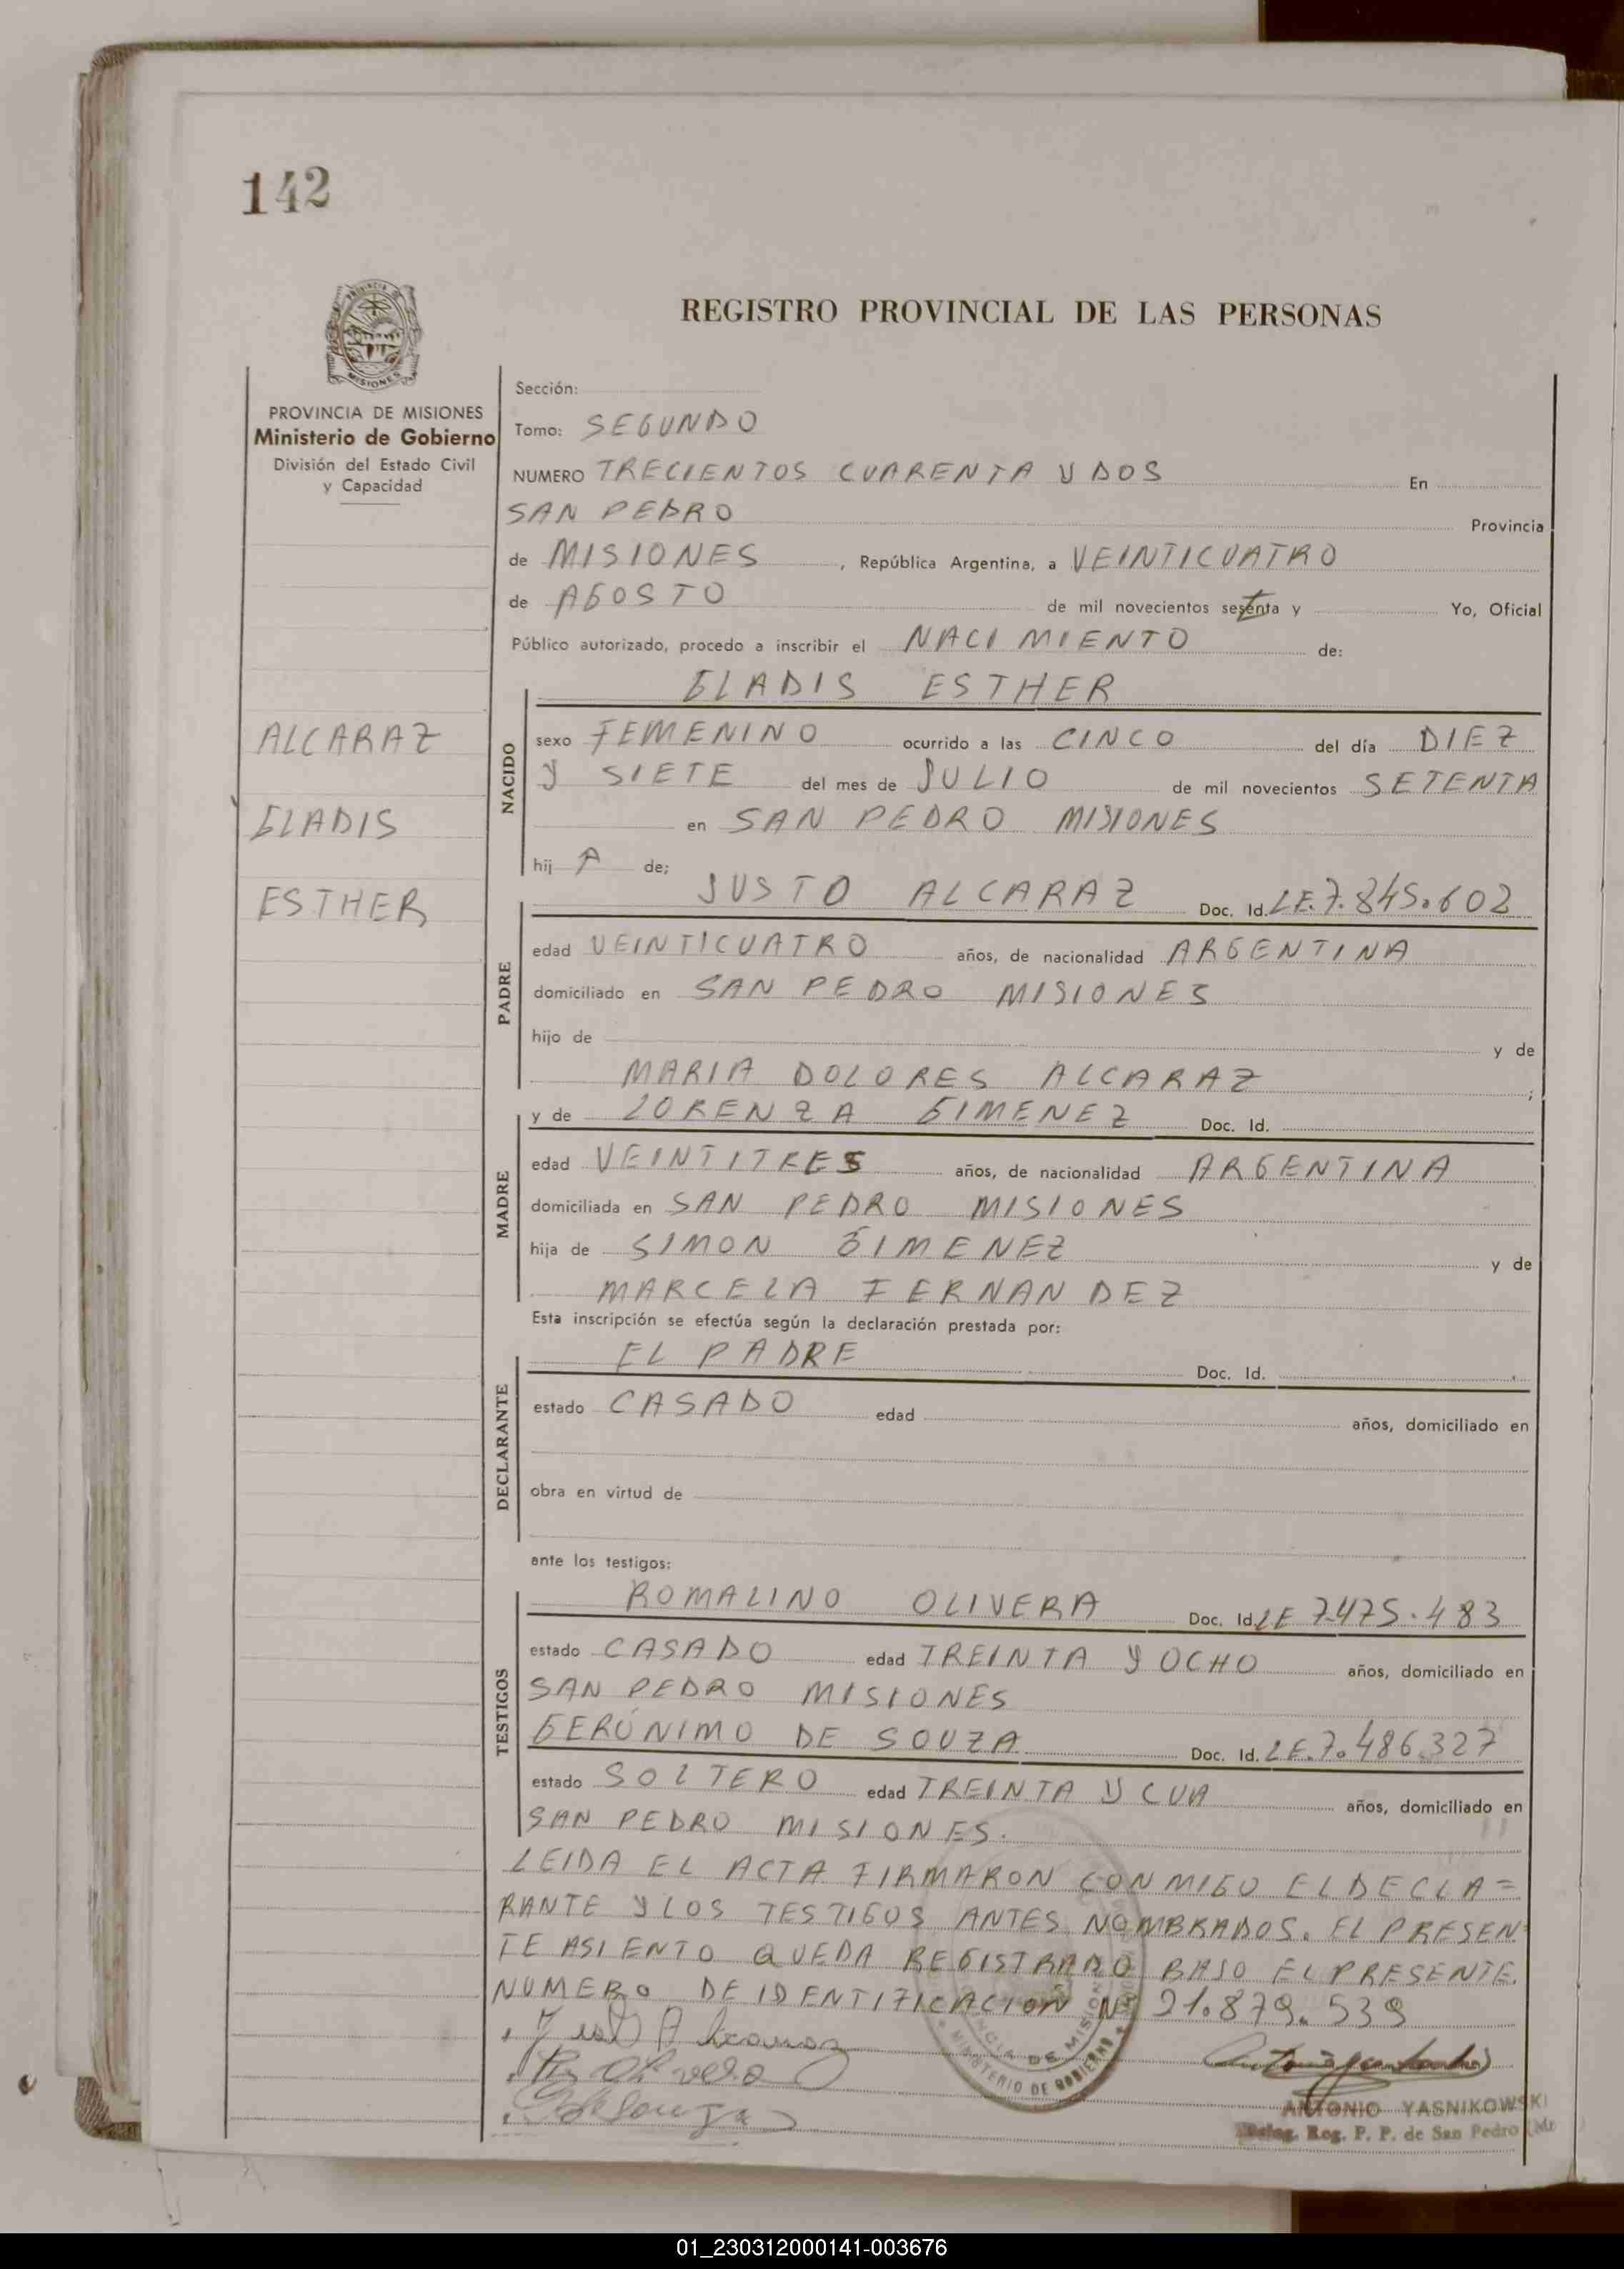 142
REGISTRO PROVINCIAL DE LAS PERSONAS
MISIONES
PROVINCIA DE MISIONES
Ministerio de Gobierno
División del Estado Civil
y Capacidad
ALCARAZ
GLADIS
ESTHER
Sección:
Tomo: SEGUNDO
NUMERO TRECIENTOS CUARENTA Y DOS En
SAN PEDRO Provincia
de MISIONES , República Argentina, a VEINTICUATRO
de AGOSTO de mil novecientos setenta y Yo, Oficial
Público autorizado, procedo a inscribir el NACIMIENTO de:
GLADIS ESTHER
NACIDO
sexo FEMENINO ocurrido a las CINCO del día DIEZ
Y SIETE del mes de JULIO de mil novecientos SETENTA
en SAN PEDRO MISIONES
hij A de;
JUSTO ALCARAZ Doc. Id. LE.7.845.602
PADRE
edad VEINTICUATRO años, de nacionalidad ARGENTINA
domiciliado en SAN PEDRO MISIONES
hijo de y de
MARIA DOLORES ALCARAZ ;
y de LORENZA GIMENEZ Doc. Id.
MADRE
edad VEINTITRES años, de nacionalidad ARGENTINA
domiciliada en SAN PEDRO MISIONES
hija de SIMON GIMENEZ y de
MARCELA FERNANDEZ
Esta inscripción se efectúa según la declaración prestada por:
EL PADRE Doc. Id.
DECLARANTE
estado CASADO edad años, domiciliado en
obra en virtud de
ante los testigos:
ROMALINO OLIVERA Doc. Id. LE 7.475.483
TESTIGOS
estado CASADO edad TREINTA Y OCHO años, domiciliado en
SAN PEDRO MISIONES
GERÓNIMO DE SOUZA Doc. Id. LE.7.486.327
estado SOLTERO edad TREINTA Y CUA años, domiciliado en
SAN PEDRO MISIONES.
LEIDA EL ACTA FIRMARON CONMIGO EL DECLA=
RANTE Y LOS TESTIGOS ANTES NOMBRADOS. EL PRESEN
TE ASIENTO QUEDA REGISTRADO BAJO EL PRESENTE.
NUMERO DE IDENTIFICACIÓN Nº 21.879.539
MINISTERIO DE GOBIERNO
PROVINCIA DE MISIONES
ANTONIO YASNIKOWSKI
Reg. P. P. de San Pedro
01_230312000141-003676